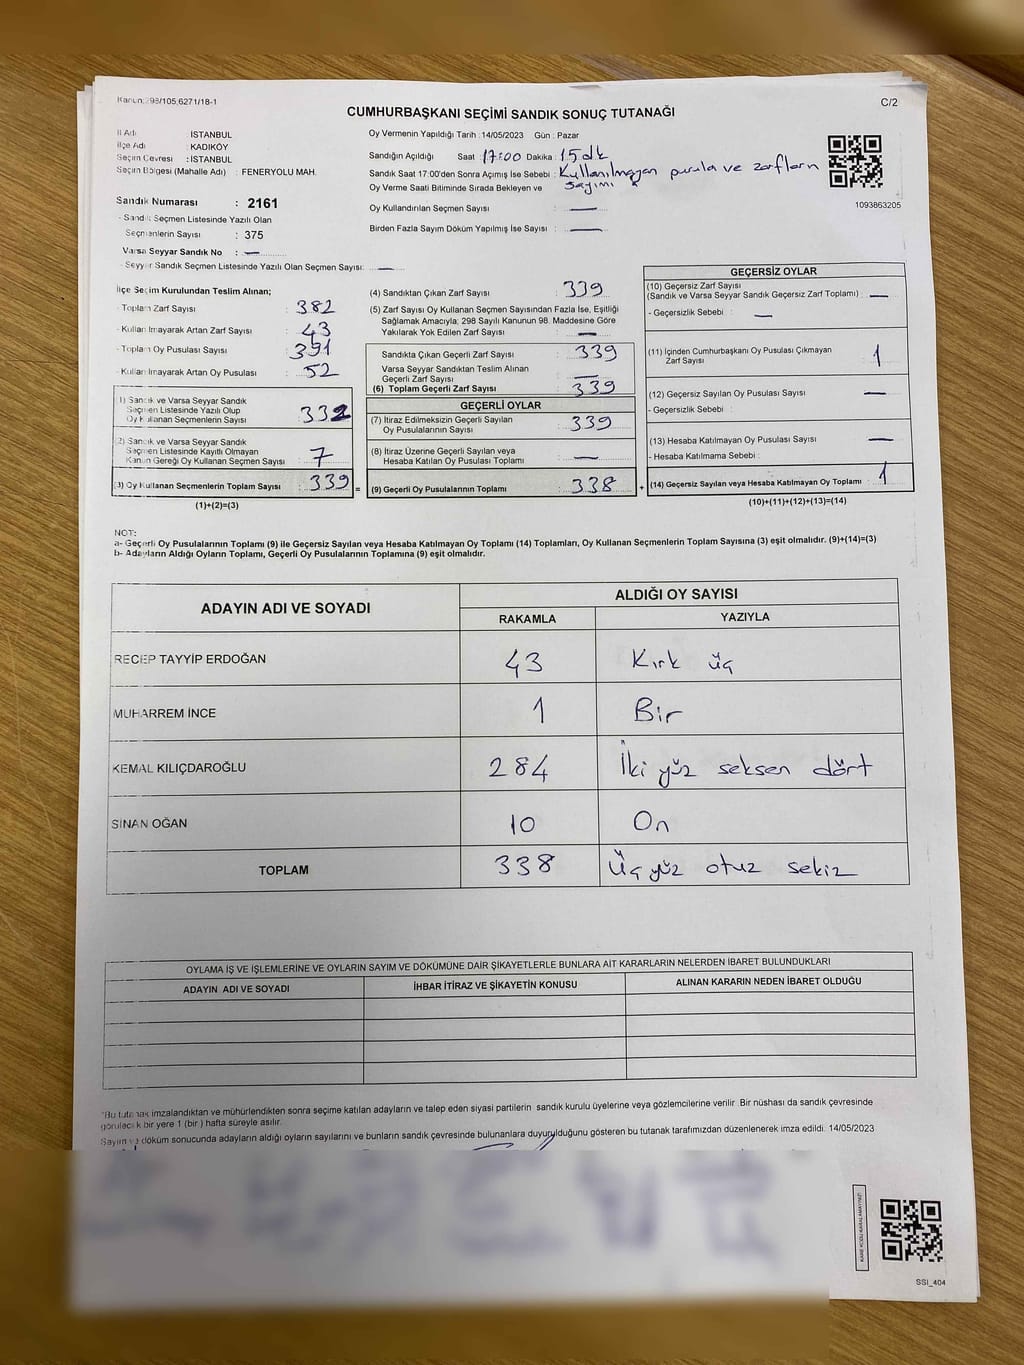 Kanun: 298/105;6271/18-1
C/2
CUMHURBAŞKANI SEÇİMİ SANDIK SONUÇ TUTANAĞI
İl Adı : İSTANBUL
İlçe Adı : KADIKÖY
Seçim Çevresi : İSTANBUL
Seçim Bölgesi (Mahalle Adı) : FENERYOLU MAH.
Sandık Numarası : 2161
- Sandık Seçmen Listesinde Yazılı Olan
Seçmenlerin Sayısı : 375
Varsa Seyyar Sandık No : —
- Seyyar Sandık Seçmen Listesinde Yazılı Olan Seçmen Sayısı: —
Oy Vermenin Yapıldığı Tarih : 14/05/2023 Gün : Pazar
Sandığın Açıldığı Saat 17:00 Dakika : 15 dk
Sandık Saat 17:00'den Sonra Açımış İse Sebebi : Kullanılmayan pusula ve zarfların
Oy Verme Saati Bitiminde Sırada Bekleyen ve sayımı
Oy Kullandırılan Seçmen Sayısı : —
Birden Fazla Sayım Döküm Yapılmış İse Sayısı : —
1093863205
İlçe Seçim Kurulundan Teslim Alınan;
- Toplam Zarf Sayısı : 382
- Kullanılmayarak Artan Zarf Sayısı : 43
- Toplam Oy Pusulası Sayısı : 391
- Kullanılmayarak Artan Oy Pusulası : 52
(1) Sandık ve Varsa Seyyar Sandık
Seçmen Listesinde Yazılı Olup
Oy Kullanan Seçmenlerin Sayısı : 332
(2) Sandık ve Varsa Seyyar Sandık
Seçmen Listesinde Kayıtlı Olmayan
Kanun Gereği Oy Kullanan Seçmen Sayısı : 7
(3) Oy Kullanan Seçmenlerin Toplam Sayısı : 339 =
(1)+(2)=(3)
(4) Sandıktan Çıkan Zarf Sayısı : 339
(5) Zarf Sayısı Oy Kullanan Seçmen Sayısından Fazla İse, Eşitliği
Sağlamak Amacıyla; 298 Sayılı Kanunun 98. Maddesine Göre
Yakılarak Yok Edilen Zarf Sayısı : —
Sandıkta Çıkan Geçerli Zarf Sayısı : 339
Varsa Seyyar Sandıktan Teslim Alınan
Geçerli Zarf Sayısı : —
(6) Toplam Geçerli Zarf Sayısı : 339
GEÇERLİ OYLAR
(7) İtiraz Edilmeksizin Geçerli Sayılan
Oy Pusulalarının Sayısı : 339
(8) İtiraz Üzerine Geçerli Sayılan veya
Hesaba Katılan Oy Pusulası Toplamı : —
(9) Geçerli Oy Pusulalarının Toplamı : 338 +
GEÇERSİZ OYLAR
(10) Geçersiz Zarf Sayısı
(Sandık ve Varsa Seyyar Sandık Geçersiz Zarf Toplamı) : —
- Geçersizlik Sebebi : —
(11) İçinden Cumhurbaşkanı Oy Pusulası Çıkmayan
Zarf Sayısı : 1
(12) Geçersiz Sayılan Oy Pusulası Sayısı : —
- Geçersizlik Sebebi :
(13) Hesaba Katılmayan Oy Pusulası Sayısı : —
- Hesaba Katılmama Sebebi :
(14) Geçersiz Sayılan veya Hesaba Katılmayan Oy Toplamı : 1
(10)+(11)+(12)+(13)=(14)
NOT:
a- Geçerli Oy Pusulalarının Toplamı (9) ile Geçersiz Sayılan veya Hesaba Katılmayan Oy Toplamı (14) Toplamları, Oy Kullanan Seçmenlerin Toplam Sayısına (3) eşit olmalıdır. (9)+(14)=(3)
b- Adayların Aldığı Oyların Toplamı, Geçerli Oy Pusulalarının Toplamına (9) eşit olmalıdır.
ADAYIN ADI VE SOYADI
ALDIĞI OY SAYISI
RAKAMLA YAZIYLA
RECEP TAYYİP ERDOĞAN 43 Kırk üç
MUHARREM İNCE 1 Bir
KEMAL KILIÇDAROĞLU 284 İki yüz seksen dört
SİNAN OĞAN 10 On
TOPLAM 338 Üç yüz otuz sekiz
OYLAMA İŞ VE İŞLEMLERİNE VE OYLARIN SAYIM VE DÖKÜMÜNE DAİR ŞİKAYETLERLE BUNLARA AİT KARARLARIN NELERDEN İBARET BULUNDUKLARI
ADAYIN ADI VE SOYADI İHBAR İTİRAZ VE ŞİKAYETİN KONUSU ALINAN KARARIN NEDEN İBARET OLDUĞU
*Bu tutanak imzalandıktan ve mühürlendikten sonra seçime katılan adayların ve talep eden siyasi partilerin sandık kurulu üyelerine veya gözlemcilerine verilir. Bir nüshası da sandık çevresinde
görülecek bir yere 1 (bir) hafta süreyle asılır.
Sayım ve döküm sonucunda adayların aldığı oyların sayılarını ve bunların sandık çevresinde bulunanlara duyurulduğunu gösteren bu tutanak tarafımızdan düzenlenerek imza edildi. 14/05/2023
KARE KODU KARALAMAYINIZ!
SSI_404